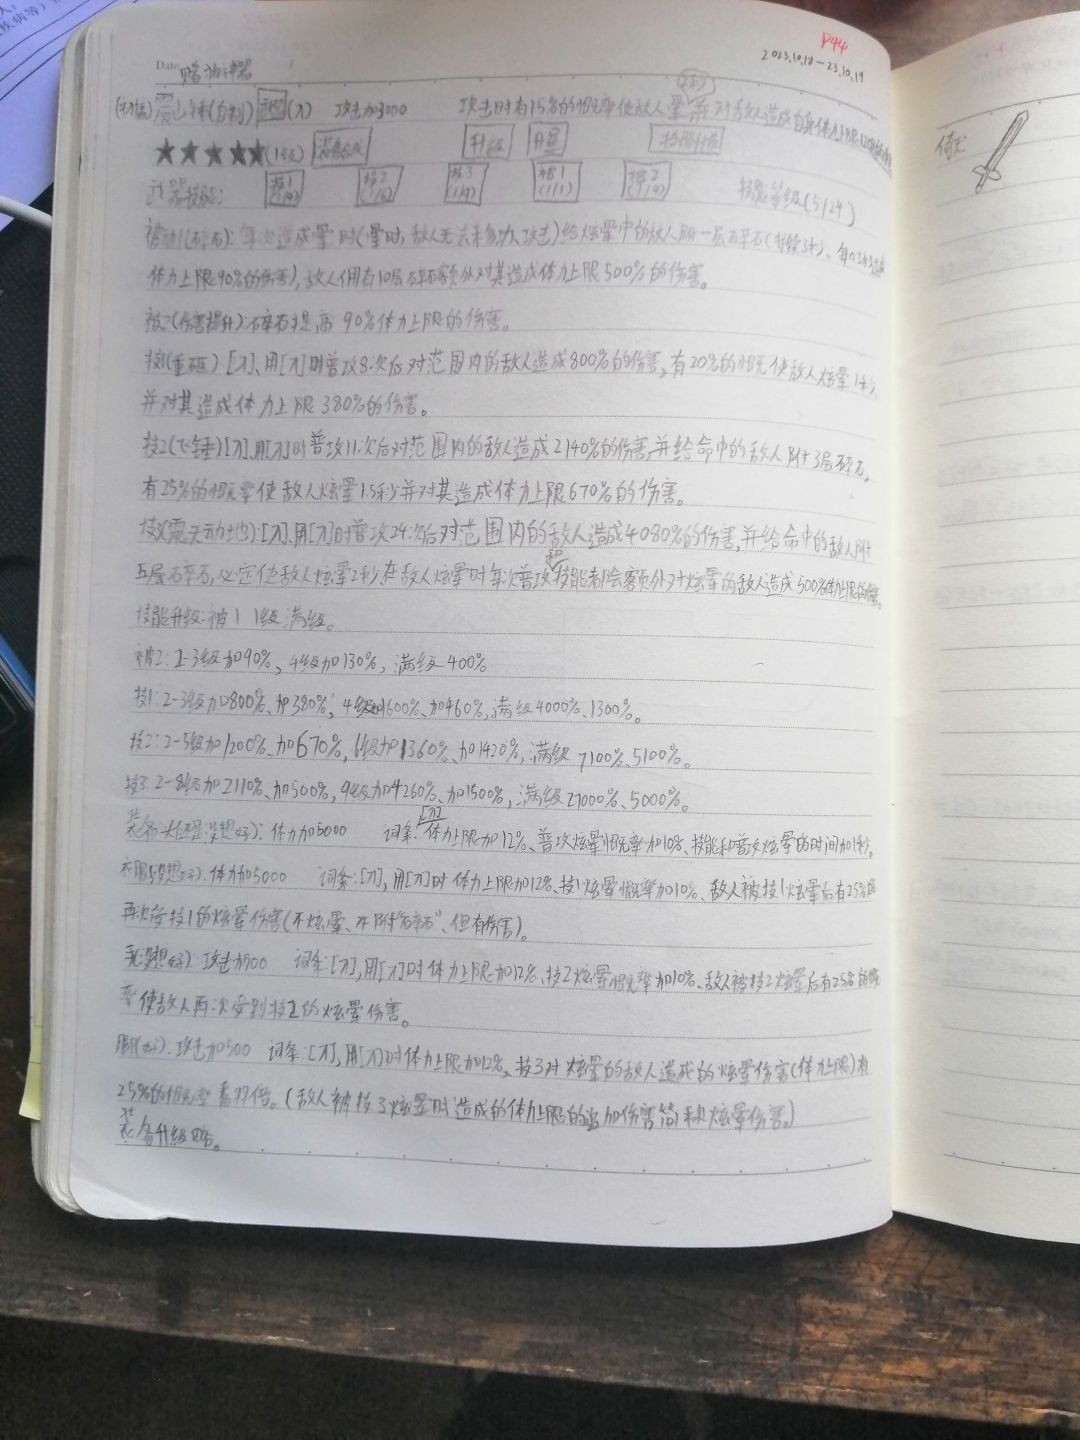 P44
2023.10.18-23.10.19
Date
震山锤(自制) (刀) 攻击加3000 攻击时有15%的概率使敌人晕 对敌人造成自身体力上限
★★★★★(1级) 装备合成 升级 升星 技能升级
武器技能: 技1 技2 (1/6) 技3 (1/9) 被1 (1/1) 被2 技能等级(5/24)
被动1(碎石):每次造成晕时(晕时,敌人无法移动、攻击)给炫晕中的敌人附一层碎石(持续3秒、每0.3秒造成
体力上限90%的伤害),敌人佣有10层碎石额外对其造成体力上限500%的伤害。
被2(伤害提升):碎石提高90%体力上限的伤害。
技1(重砸)[刀]、用[刀]时普攻8次后对范围内的敌人造成800%的伤害,有20%的概率使敌人炫晕1秒、
并对其造成体力上限380%的伤害。
技2(飞锤)[刀],用[刀]时普攻11次后对范围内的敌人造成2140%的伤害,并给命中的敌人附3层碎石,
有25%的概率使敌人炫晕1.5秒并对其造成体力上限670%的伤害。
技3(震天动地):[刀].用[刀]时普攻24次后对范围内的敌人造成4080%的伤害,并给命中的敌人附
五层碎石,必定使敌人炫晕2秒,在敌人炫晕时每次普攻和技能都会额外对炫晕的敌人造成500%体力上限的伤害。
技能升级:被1 1级满级。
被2:2-3级加90%,4级加130%,满级400%
技1:2-3级加800%、加380%,4级加1600%、加460%,满级4000%、1300%。
技2:2-5级加1200%、加670%,6级加1360%、加1420%,满级7100%、5100%。
技3:2-8级加2110%、加500%,9级加4260%、加1500%,满级27000%、5000%。
装备:头(没想好):体力加5000 词条:[刀]体力上限加12%、普攻炫晕概率加10%、技能和普攻炫晕的时间加1秒。
衣服(没想好):体力加5000 词条:[刀],用[刀]时体力上限加12%、技1炫晕概率加10%、敌人被技1炫晕后有25%的
再次受技1的炫晕伤害(不炫晕、不附“碎石”、但有伤害)。
手(没想好):攻击加500 词条:[刀],用[刀]时体力上限加12%、技2炫晕概率加10%、敌人被技2炫晕后有25%的概
率使敌人再次受到技2的炫晕伤害。
脚(没想好):攻击加500 词条:[刀],用[刀]时体力上限加12%、技3对炫晕的敌人造成的炫晕伤害(体力上限)有
25%的概率翻倍。(敌人被技3炫晕时造成的体力上限的追加伤害简称炫晕伤害。)
装备升级略。
倚天